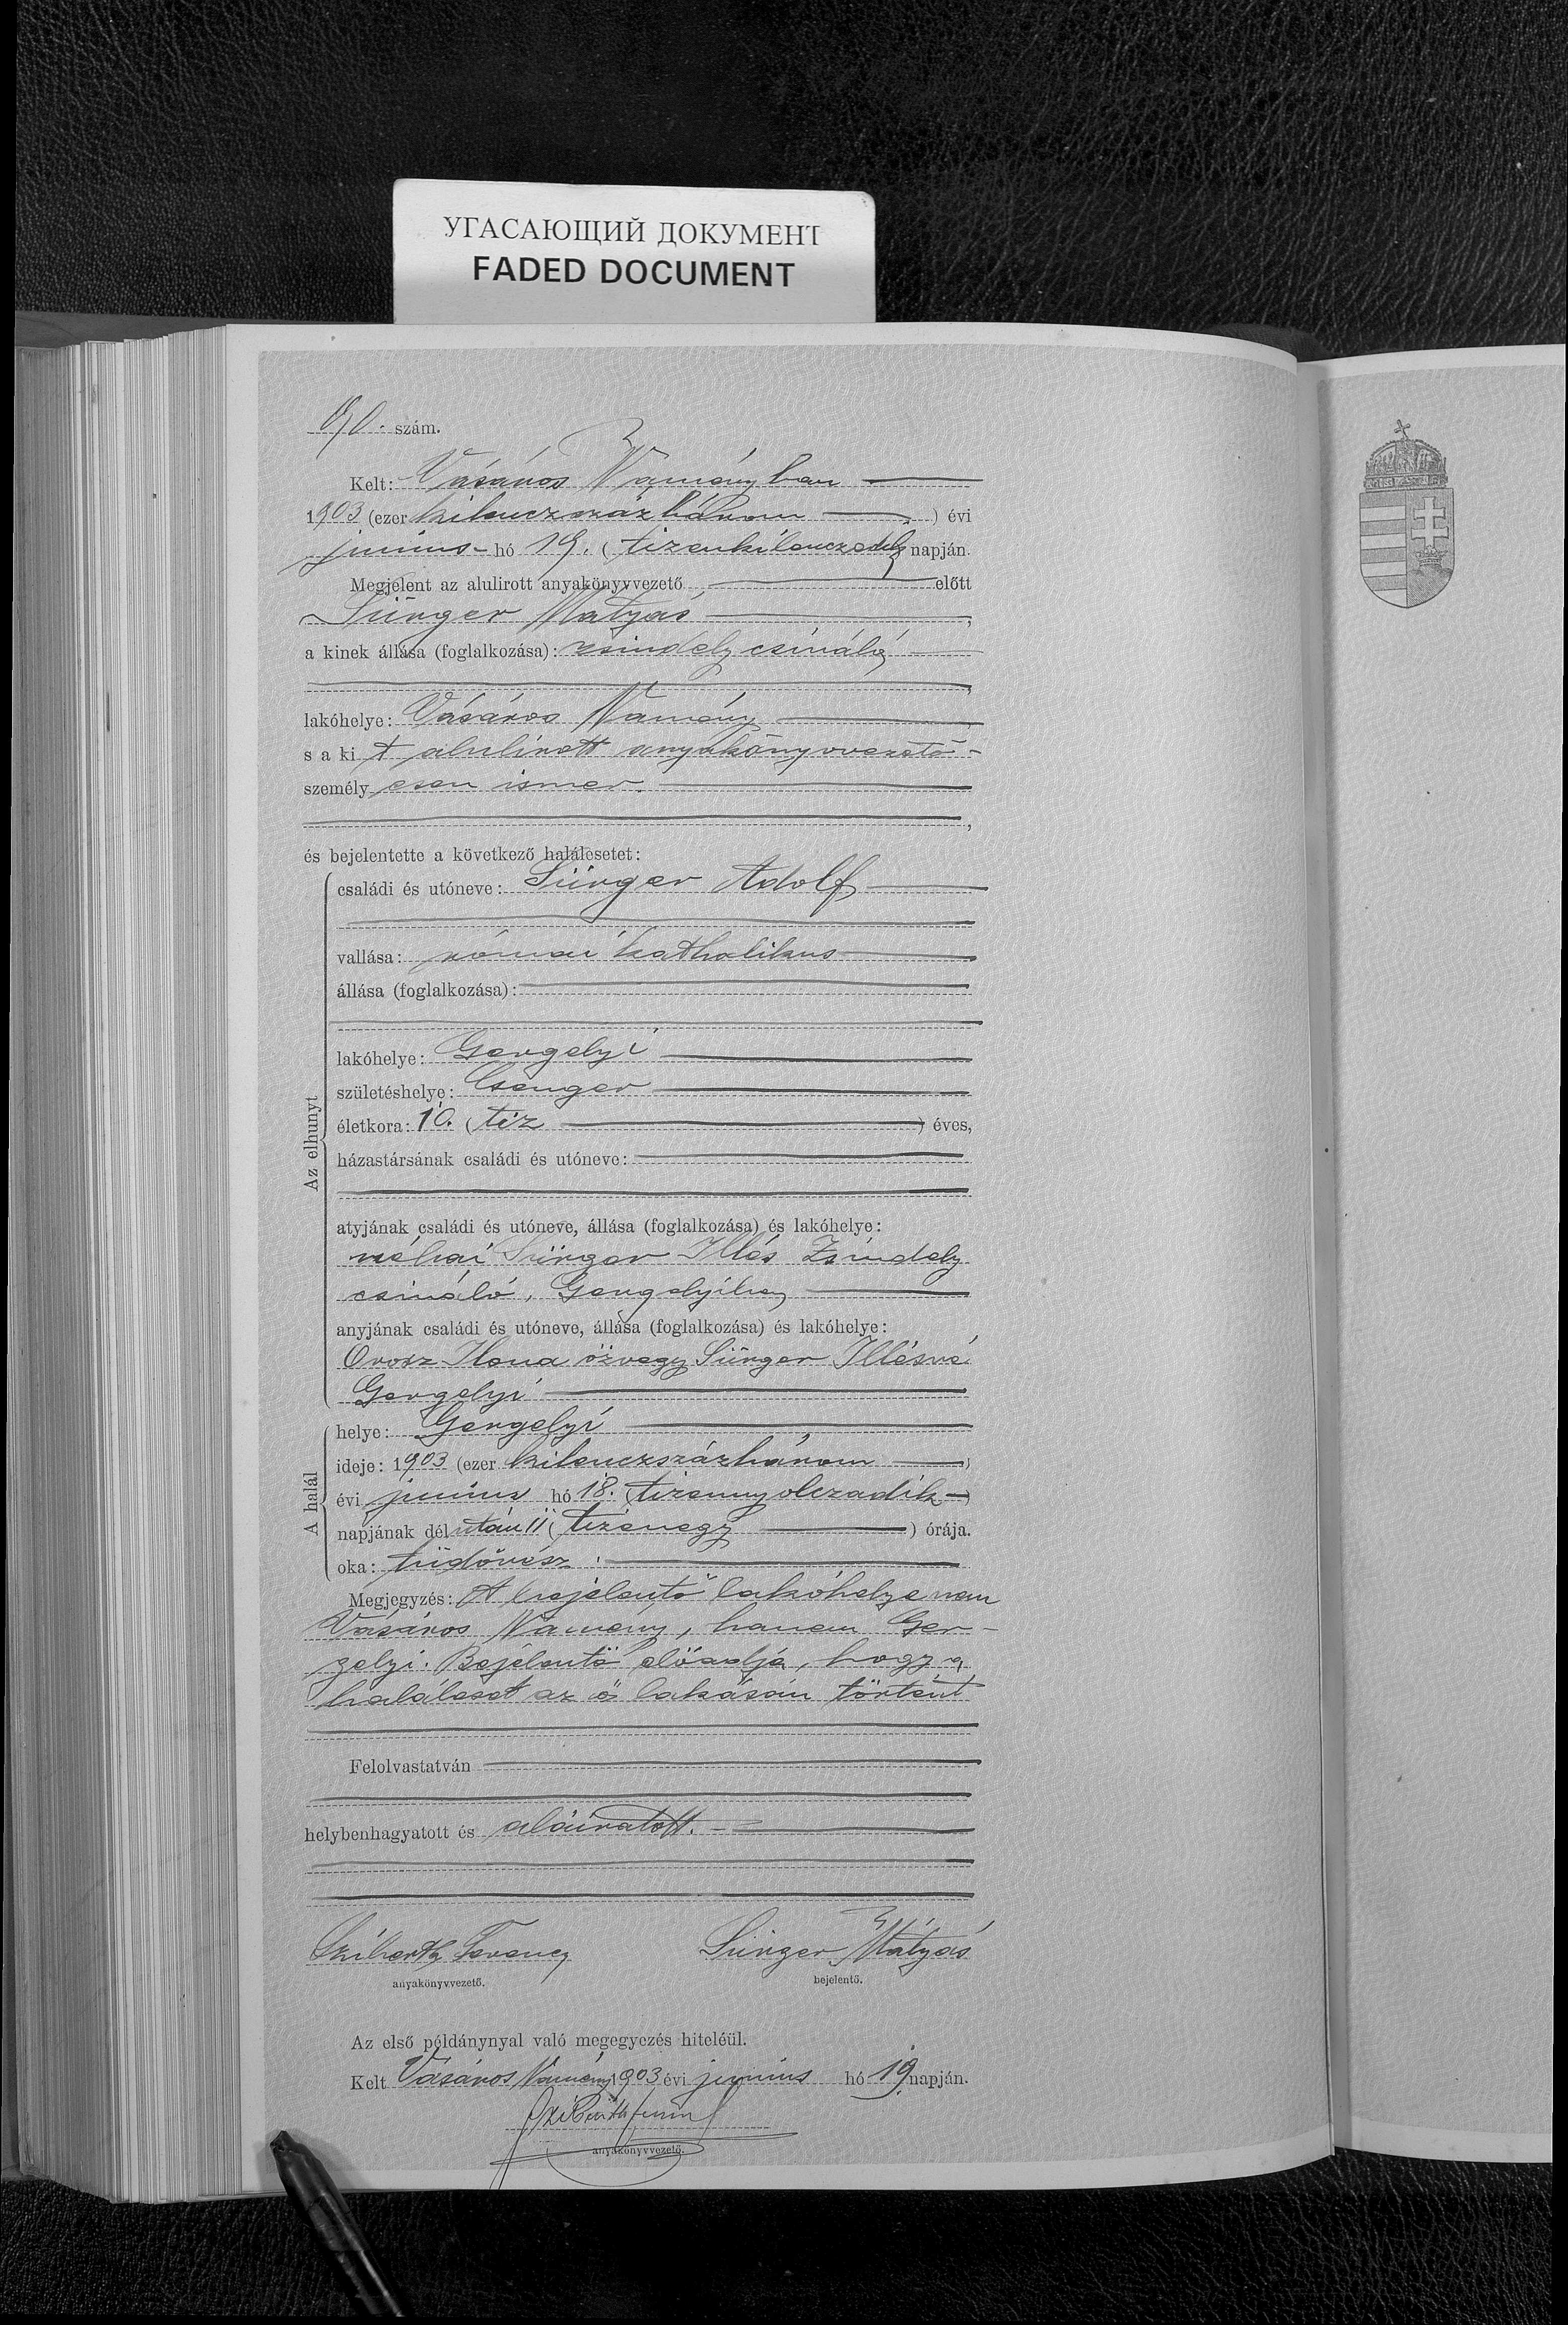 УГАСАЮЩИЙ ДОКУМЕНТ
FADED DOCUMENT
szám.
Kelt: Vásáros Naményban
1903 (ezer kilenczszázhárom) évi
junius hó 19. (tizenkilenczedik napján.
Megjelent az alulirott anyakönyvvezető előtt
Sünger Mátyás,
a kinek állása (foglalkozása): zsindely csináló
,
lakóhelye: Vásáros Namény
s a ki t alulirott anyakönyvvezető
személy esen ismer.
,
és bejelentette a következő halálesetet:
Az elhunyt
családi és utóneve: Sünger Adolf
vallása: római katholikus
állása (foglalkozása):
lakóhelye: Gergelyi
születéshelye: Csenger
életkora: 10. (tiz) éves,
házastársának családi és utóneve:
atyjának családi és utóneve, állása (foglalkozása) és lakóhelye:
néhai Sünger Illés Zsindely
csináló, Gergelyiben
anyjának családi és utóneve, állása (foglalkozása) és lakóhelye:
Orosz Ilona özvegy Sünger Illésné
Gergelyi
A halál
helye: Gergelyi
ideje: 1903 (ezer kilenczszázhárom)
évi junius hó 18. (tizennyolczadik)
napjának dél után 11 (tizenegy) órája.
oka: tüdővész.
Megjegyzés: A bejelentő lakóhelye nem
Vásáros Namény, hanem Ger-
gelyi. Bejelentő előadja, hogy a
haláleset az ő lakásán történt
Felolvastatván
helybenhagyatott és aláiratott.
Ferencz Sünger Mátyás
anyakönyvvezető. bejelentő.
Az első példánynyal való megegyezés hiteléül.
Kelt Vásáros Namény 1903 évi junius hó 19 napján.
anyakönyvvezető.